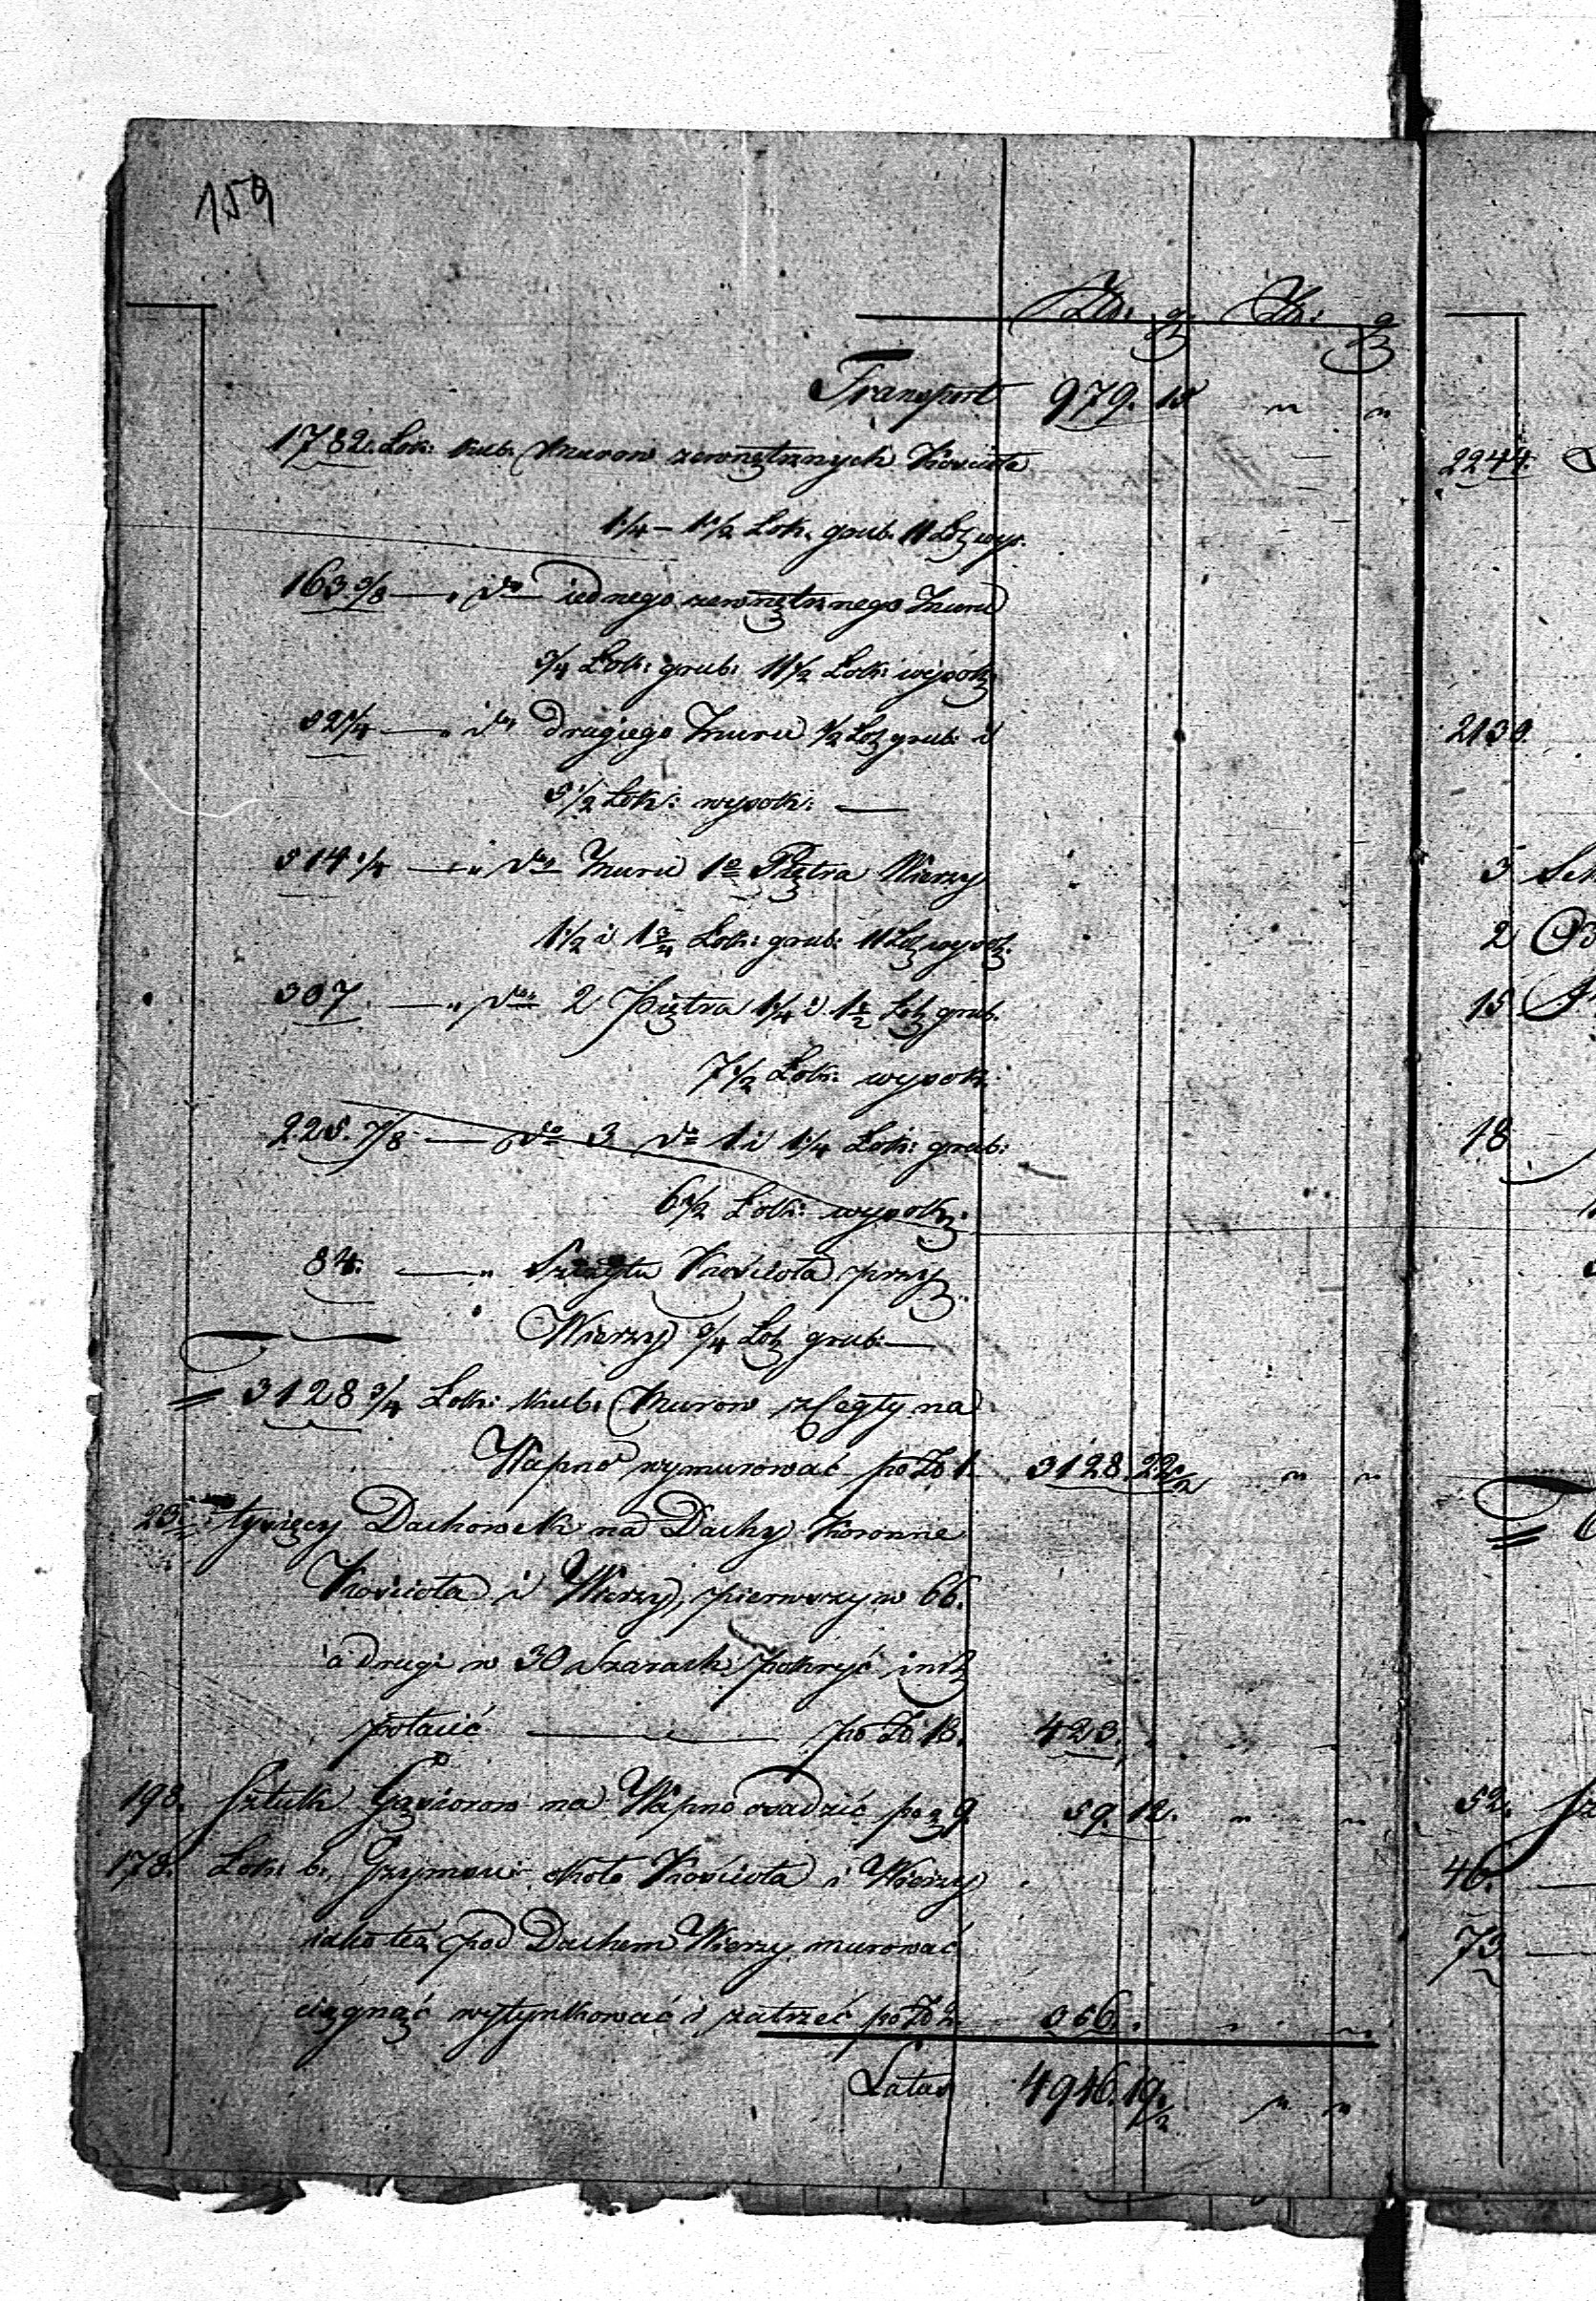 159
Zło: g. Zło: g
Transport 979. 15 " "
1782. Łok: kub. Murow zewnętrznych Kościoła
1 1/4 – 1 1/2 Łok. grub. 11 Łok wys.
163 5/8 — do iednego zewnętrznego Muru
3/4 Łok: grub: 11 1/2 Łok: wysok
52 1/4 — do drugiego Muru 1/2 Łok grub: i
5 1/2 Łok: wysok: —
514 1/4 — do Muru 1o Piętra Wierzy
1 1/2 i 1 3/4 Łok: grub: 11 Łok wysok:
307. — do 2 Piętra 1 1/4 i 1 1/2 Łok grub.
7 1/2 Łok: wysok:
225. 7/8 — do 3 do 1 i 1 1/4 Łok: grub:
6 1/2 Łok: wysok:
84. — Szczytu Kościoła przy
Wierzy 3/4 Łok grub: —
= 3128 3/4 Łok: kub: Murow z Cegły na
Wapno wymurować po Zło 1. 3128. 22 1/2 " "
23 1/2 tysięcy Dachowek na Dachy Koronne
Kościoła i Wierzy, pierwszy w 66.
a drugi w 30 Szarach pokryć i
połacić — po Zło 18. 423. " "
198. Sztuk Gąsiorow na Wapno osadzić po g 9. 59. 12. " "
178. Łok: b: Gzymsu około Kościoła i Wierzy
iako też pod Dachem Wierzy murować
ciągnąć wytynkować i zatrzeć po Zło 2. 356. " "
Latus 4946. 19 1/2 " "
2244.
2130
3
2
15
18
52.
46. —
73 —